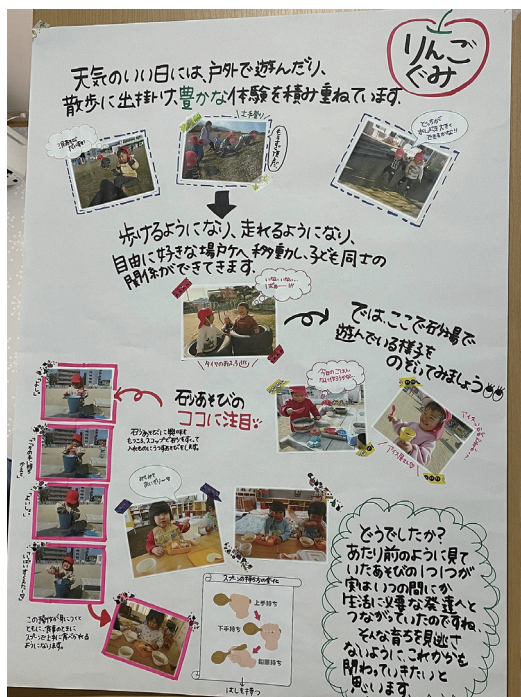 りんご
ぐみ
天気のいい日には、戸外で遊んだり、
散歩に出掛け、豊かな体験を積み重ねています。
土手登り
どっちが
できるかな
歩けるようになり、走れるようになり、
自由に好きな場所へ移動し、子ども同士の
関係ができてきます。
いないいない
ばぁー
タイヤのおふろ
では、ここで砂場で
遊んでいる様子を
のぞいてみましょう
砂あそびの
ココに注目
砂あそびに興味を
もつころ、スコップで砂をすくって
入れものにうつすあそびをします。
今日のごはん
アイス屋さん
よいしょ
この操作が身につくと
ともに、食事のときに
スプーンで上手に食べられる
ようになります。
スプーンの持ち方の変化
上手持ち
下手持ち
鉛筆持ち
はしを持つ
どうでしたか?
あたり前のように見て
いたあそびの1つ1つが
実はいつの間にか
生活に必要な発達へと
つながっていたのですね。
そんな育ちを見逃さ
ないように、これからも
関わっていきたいと
思います。